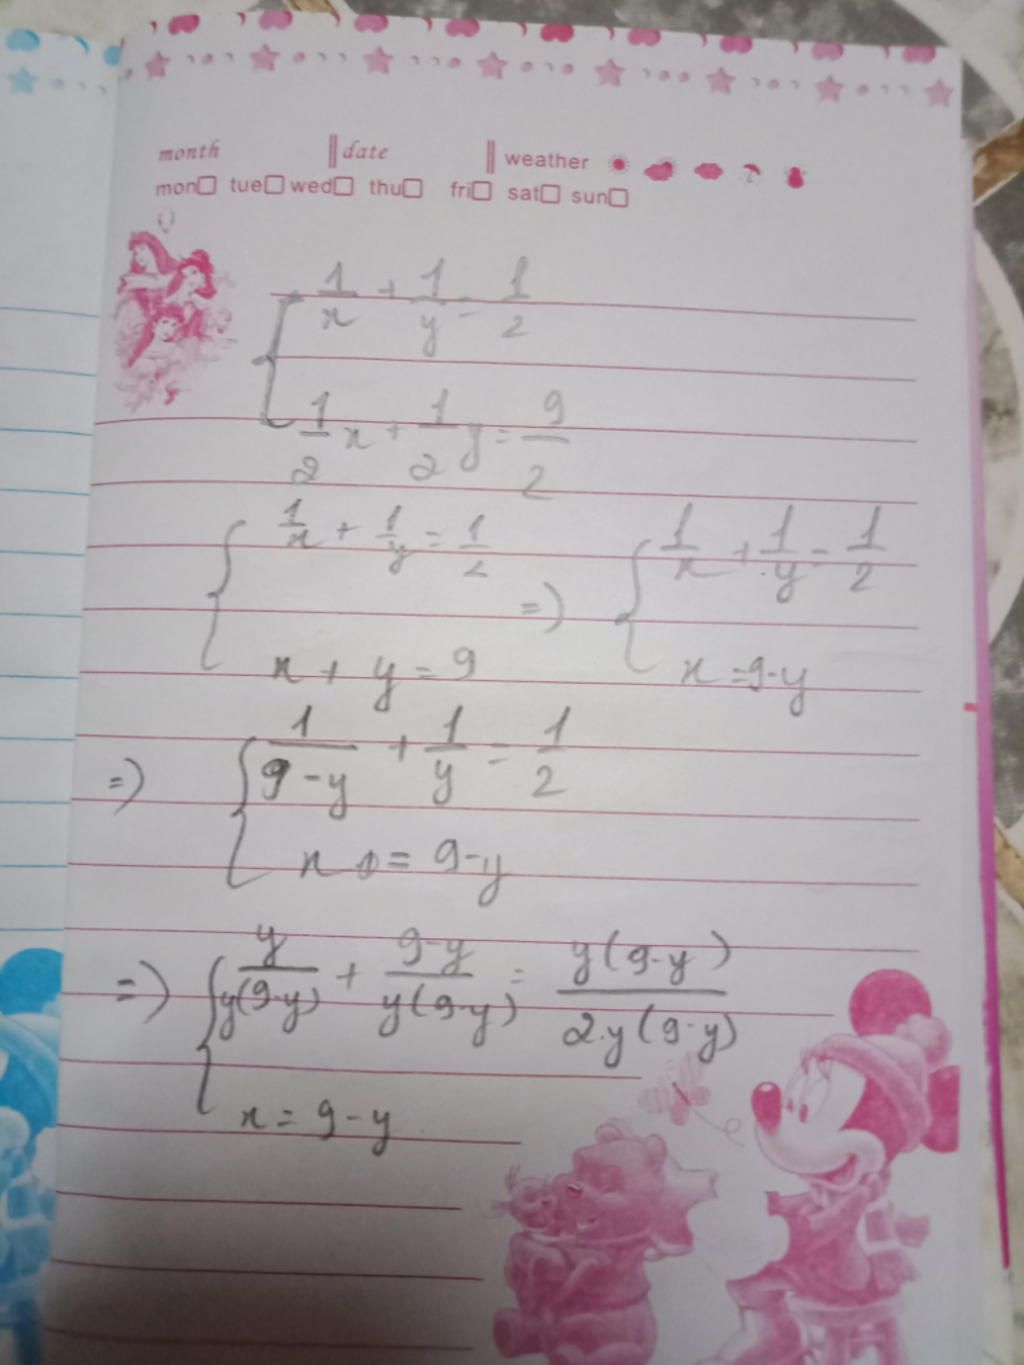 month date weather
mon tue wed thu fri sat sun
{ 1/x + 1/y = 1/2
1/2 x + 1/2 y = 9/2
{ 1/x + 1/y = 1/2
x + y = 9
=) { 1/x + 1/y = 1/2
x = 9-y
=) { 1/(9-y) + 1/y = 1/2
x = 9-y
=) { y/(y(9-y)) + (9-y)/(y(9-y)) = y(9-y)/(2.y(9-y))
x = 9-y